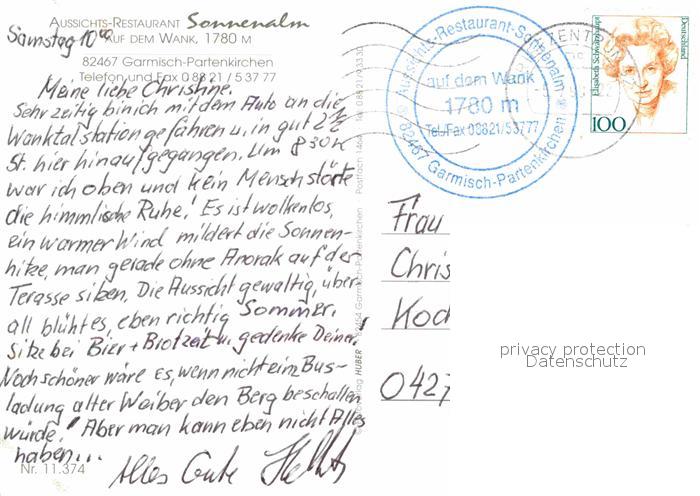 Aussichts-Restaurant Sonnenalm
Samstag 10⁰⁰
auf dem Wank, 1780 m
82467 Garmisch-Partenkirchen
Telefon und Fax 0 88 21 / 5 37 77
Meine liebe Christine.
Sehr zeitig bin ich mit dem Auto an die
Wanktalstation gefahren u. in gut 2½
St. hier hinaufgegangen. Um 8³⁰h
war ich oben und kein Mensch störte
die himmlische Ruhe! Es ist wolkenlos,
ein warmer Wind mildert die Sonnen-
hitze, man gerade ohne Anorak auf der
Terasse sitzen. Die Aussicht gewaltig, über-
all blüht es, eben richtig Sommer.
sitze bei Bier + Brotzeit u. gedenke Deiner!
Noch schöner wäre es, wenn nicht ein Bus-
ladung alter Weiber den Berg beschallen
würde! Aber man kann eben nicht Alles
haben...
Alles Gute
Nr. 11.374
HUBER
82454 Garmisch-Partenkirchen
Aussichts-Restaurant-Sonnenalm
auf dem Wank
1780 m
Tel./Fax 08821/53777
82467 Garmisch-Partenkirchen
Elisabeth Schwarzhaupt
Deutschland
100
Frau
Chris
Kod
0427
privacy protection
Datenschutz